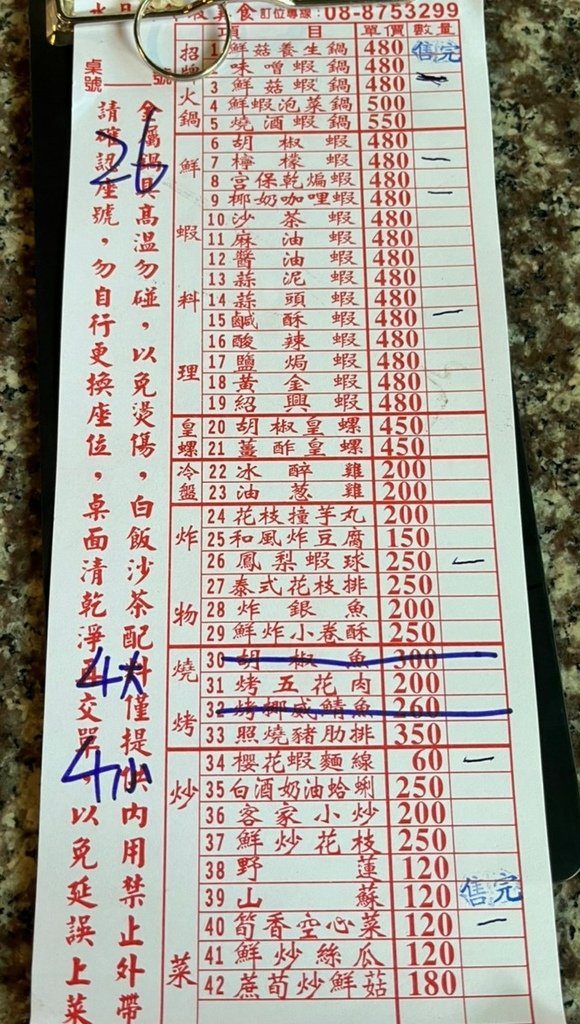 美食 訂位專線:08-8753299
項 目 單價 數量
招牌火鍋
1 鮮菇養生鍋 480 售完
2 味噌蝦鍋 480
3 鮮菇蝦鍋 480
4 鮮蝦泡菜鍋 500
5 燒酒蝦鍋 550
鮮蝦料理
6 胡椒蝦 480
7 檸檬蝦 480 一
8 宮保乾煸蝦 480
9 椰奶咖哩蝦 480 一
10 沙茶蝦 480
11 麻油蝦 480
12 醬油蝦 480
13 蒜泥蝦 480
14 蒜頭蝦 480
15 鹹酥蝦 480 一
16 酸辣蝦 480
17 鹽焗蝦 480
18 黃金蝦 480
19 紹興蝦 480
皇螺
20 胡椒皇螺 450
21 薑酢皇螺 450
冷盤
22 冰醉雞 200
23 油蔥雞 200
炸物
24 花枝撞芋丸 200
25 和風炸豆腐 150
26 鳳梨蝦球 250 一
27 泰式花枝排 250
28 炸銀魚 200
29 鮮炸小卷酥 250
燒烤
30 胡椒魚 300
31 烤五花肉 200
32 烤挪威鯖魚 260
33 照燒豬肋排 350
炒菜
34 櫻花蝦麵線 60 一
35 白酒奶油蛤蜊 250
36 客家小炒 200
37 鮮炒花枝 250
38 野蓮 120
39 山蘇 120 售完
40 筍香空心菜 120 一
41 鮮炒絲瓜 120
42 蔗筍炒鮮菇 180
桌號 號
26
4大
4小
金屬鍋具高溫勿碰，以免燙傷，白飯沙茶配料僅提供內用禁止外帶
請確認座號，勿自行更換座位，桌面清乾淨再交單，以免延誤上菜